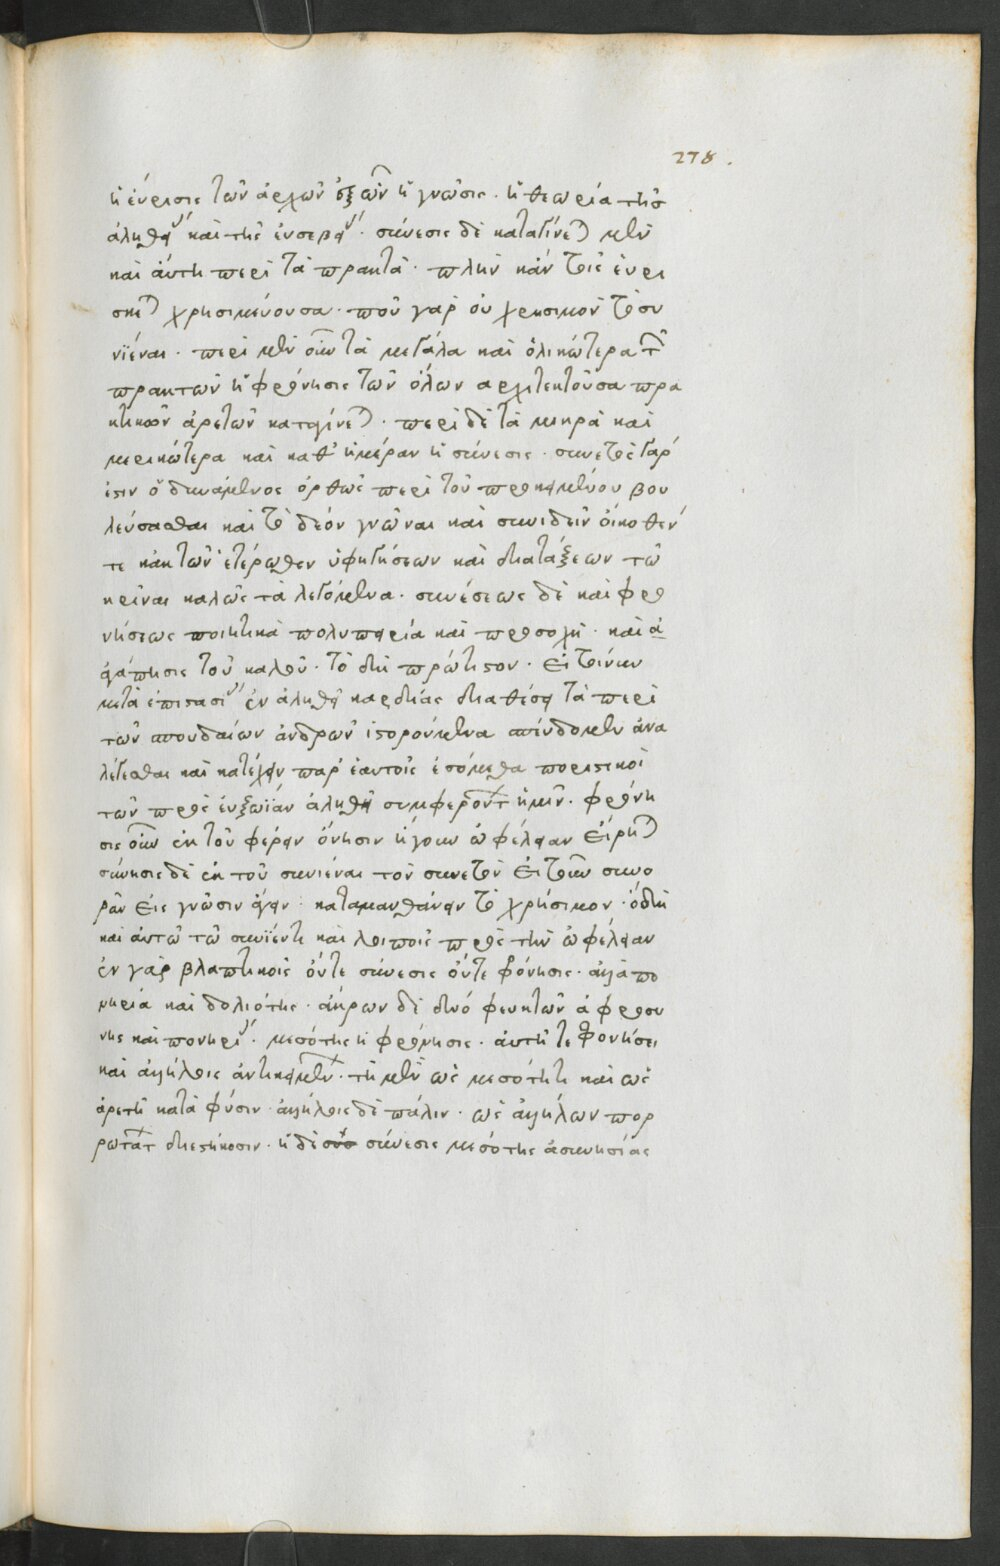 278.
ἡ ἕυρεσις τῶν ἀρχῶν ἐξ ὧν ἡ γνῶσις. ἡ θεωρία τῆς
ἀληθείας καὶ τῆς ἐυσεβείας. σύνεσις δὲ καταγίνεται μὲν
καὶ ἀύτη περὶ τὰ πρακτὰ. πλὴν κἀν τοῖς ἑυρι
σκεται χρησιμεύουσα. ποῦ γὰρ οὐ χρήσιμον τὸ συ
νϊέναι. περὶ μὲν οὖν τὰ μεγάλα καὶ ὁλικώτερα τῶν
πρακτῶν ἡ φρόνησις τῶν ὅλων αρχιτεκτοῦσα πρα
κτικῶν ἀρετῶν καταγίνεται. περὶ δὲ τὰ μικρὰ καὶ
μερικώτερα καὶ καθ' ἡμέραν ἡ σύνεσις. συνετὸς γάρ
ἐστιν ὁ δυνάμενος ὀρθῶς περὶ τοῦ προκειμένου βου
λεύσασθαι καὶ τὸ δέον γνῶναι καὶ συνιδεῖν ὀίκοθέν
τε κἀκ τῶν ἑτέρωθεν ὑφηγήσεων καὶ διατάξεων τῶ
κρῖναι καλῶς τὰ λεγόμενα. συνέσεως δὲ καὶ φρο
νήσεως ποιητικὰ πολυπειρία καὶ προσοχὴ. καὶ ἀ
γάπησις τοῦ καλοῦ. τὸ δὴ πρώτιστον. ἐι τοίνυν
μετὰ ἐπιστασίας ἐν ἀληθεῖ καρδίας διαθέσει τὰ περὶ
τῶν σπουδαίων ἀνδρῶν ἱστορούμενα σπεύδομεν ἀνα
λέγεσθαι καὶ κατέχειν παρ' ἑαυτοῖς ἐσόμεθα πορισικοὶ
τῶν πρὸς ἐυζωΐαν ἀληθῆ συμφερόντων ἡμῖν. φρόνη
σις οὖν ἐκ τοῦ φέρειν ὄνησιν ἤγουν ὠφέλειαν ἐίρηται
σύνησις δὲ ἐκ τοῦ συνιέναι τὸν συνετὸν ἐίτ' οὖν συνο
ρᾶν ἐις γνῶσιν ἄγειν. καταμανθάνειν τὸ χρήσιμον. ὁδὴ
καὶ ἀυτῶ τῶ συνϊέντι καὶ λοιποῖς πρὸς τὴν ὠφέλειαν
ἐν γὰρ βλαπτικοῖς ὄυτε σύνεσις ὄυτε φρόνησις. ἀλλὰ πο
νηρία καὶ δολιότης. ἄκρων δὲ δυό φευκτῶν ἀφροσυ
νης καὶ πονηρίας. μεσότης ἡ φρόνησις. ἀυτῆ τε φρονήσει
καὶ ἀλλήλοις ἀντικειμένων. τῆ μὲν ὡς μεσότητι καὶ ὡς
ἀρετῆ κατὰ φύσιν. ἀλλήλοις δὲ πάλιν. ὡς ἀλλήλων πορ
ρωτάτω διεστήκοσιν. ἡ δὲ σύνεσις μεσότης ἀσυνησίας